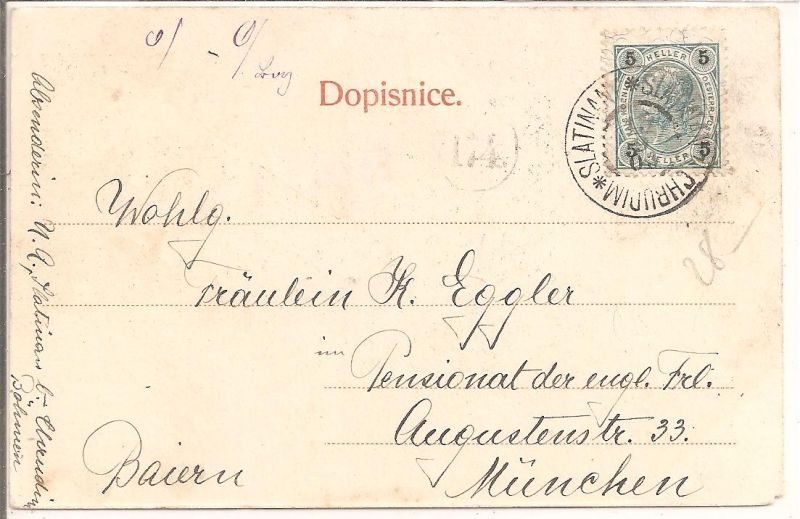 Dopisnice.
5 HELLER 5
5 HELLER 5
SLATINAN
CHRUDIM
174.
28
Wohlg.
Fräulein K. Eggler
im
Pensionat der engl. Frl.
Augustenstr. 33.
Baiern München
Absenderin: N. Q. Slatinan b. Chrudim
Böhmen